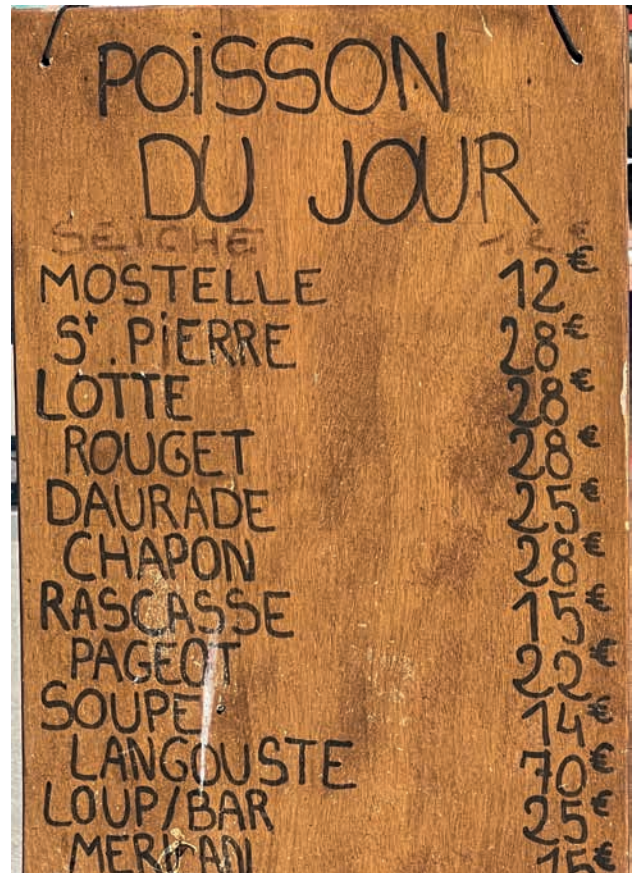 POISSON
DU JOUR
SEICHE 12€
MOSTELLE 12€
St. PIERRE 28€
LOTTE 28€
ROUGET 28€
DAURADE 25€
CHAPON 28€
RASCASSE 15€
PAGEOT 22€
SOUPE 14€
LANGOUSTE 70€
LOUP/BAR 25€
MERLAN 15€